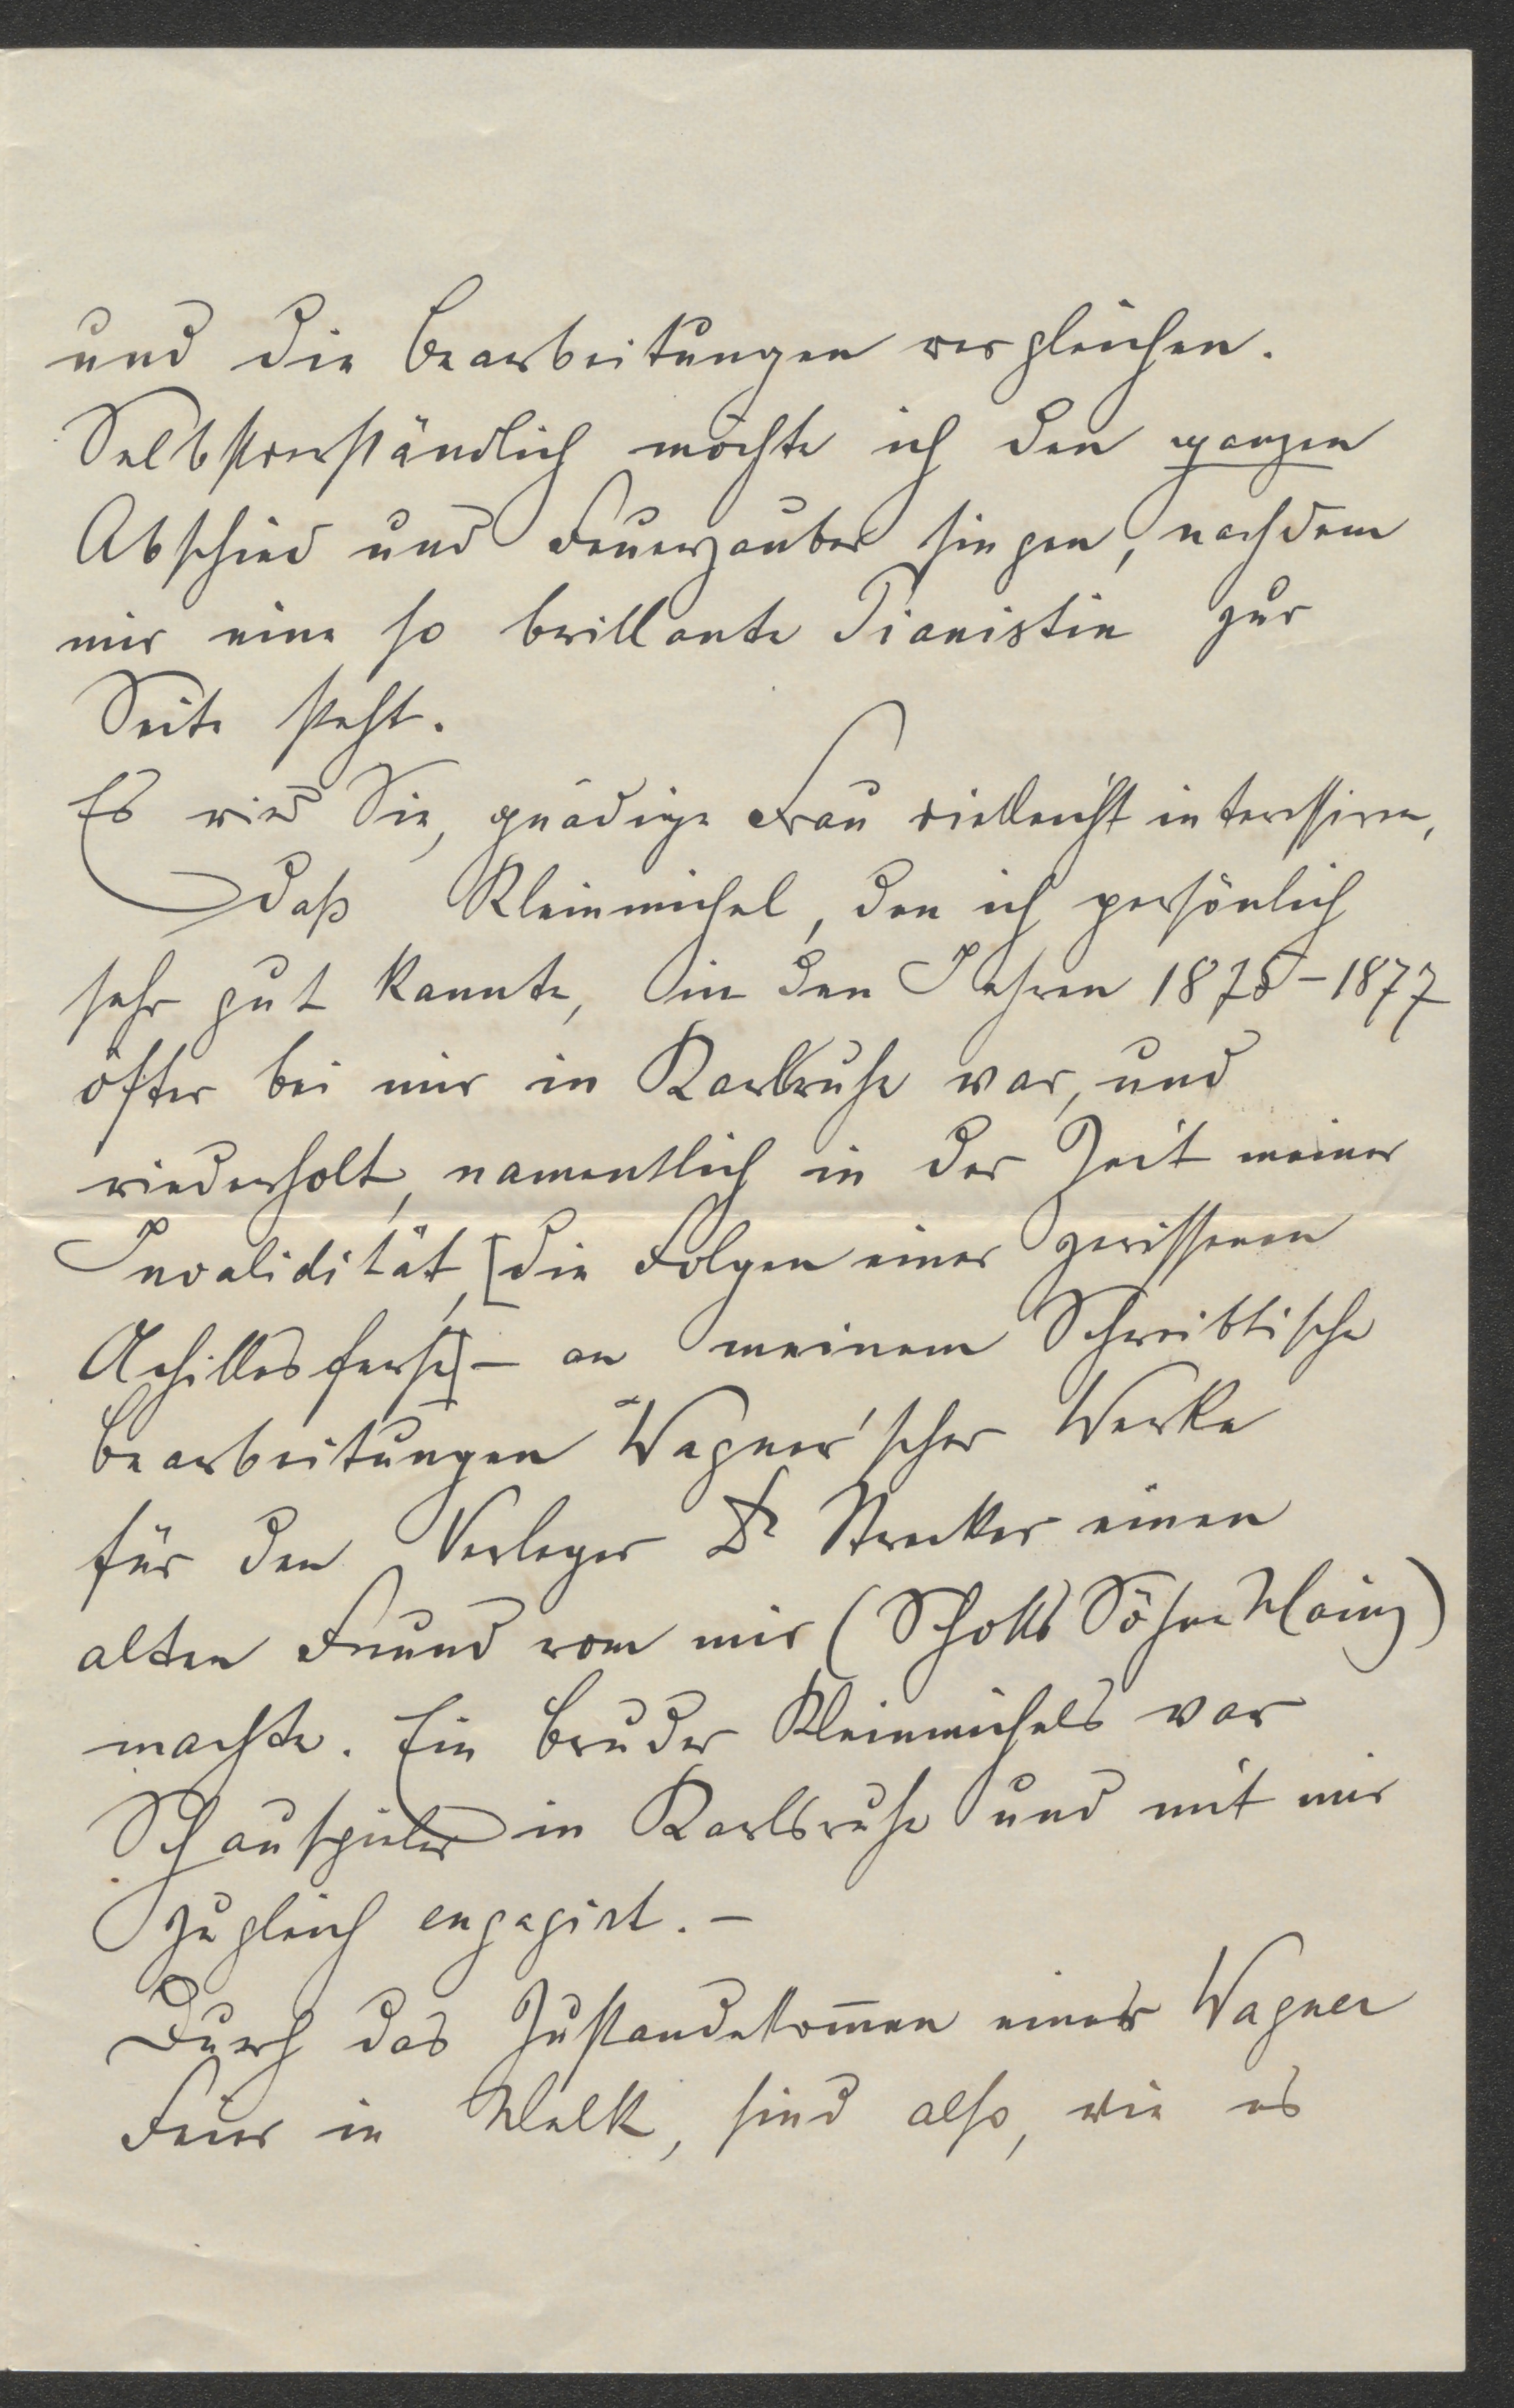 und die Bearbeitungen vergleichen.
Selbstverständlich möchte ich den ganzen
Abschied und Feuerzauber singen, nachdem
mir eine so brillante Pianistin zur
Seite steht.
Es wird Sie, gnädige Frau vielleicht interessiren,
daß Kleinmichel, den ich persönlich
sehr gut kannte, in den Jahren 1875-1877
öfter bei mir in Karlsruhe war, und
wiederholt, namentlich in der Zeit meiner
Invalidität, [die Folgen einer zerissenen
Achillesferse] – an meinem Schreibtische
Bearbeitungen Wagner'scher Werke
für den Verleger Dr Strecker einen
alten Freund von mir (Schotts Söhne Mainz)
machte. Ein Bruder Kleinmichels war
Schauspieler in Karlsruhe und mit mir
zugleich engagirt. –
Durch das Zustandekom̅en einer Wagner
Feier in Melk, sind also, wie es